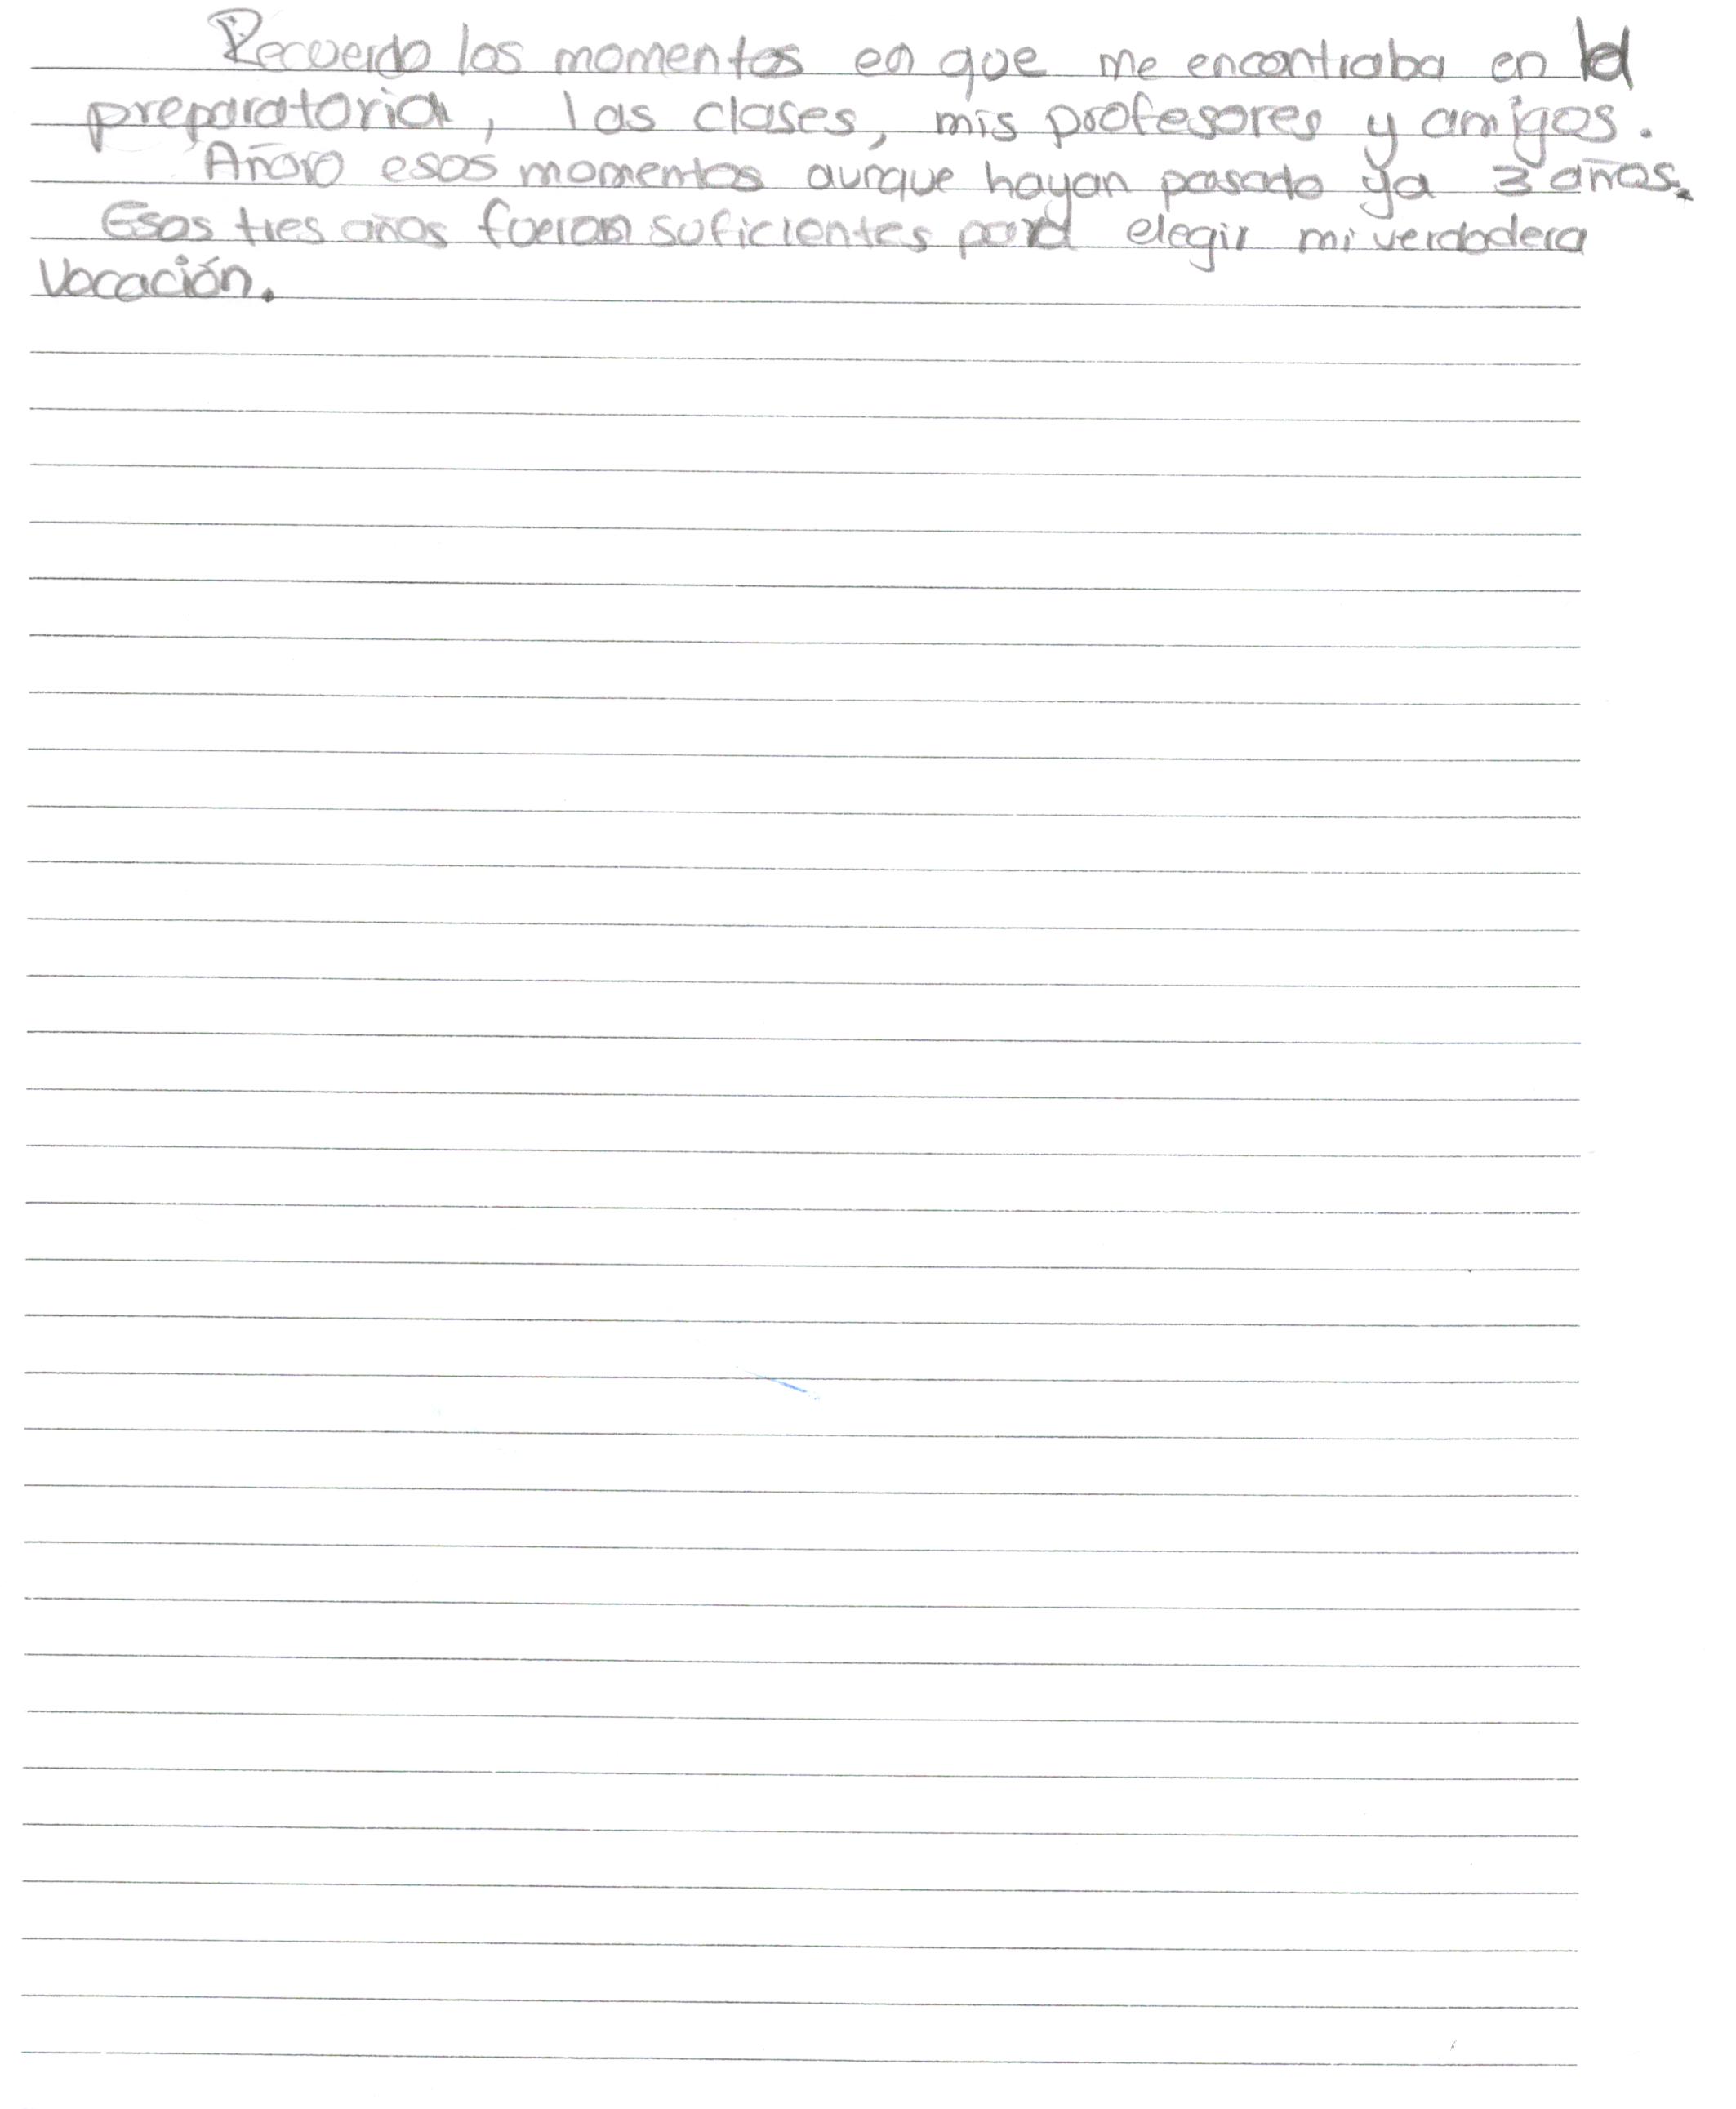 Recuerdo los momentos en que me encontraba en la
preparatoria, las clases, mis profesores y amigos.
Añoro esos momentos aunque hayan pasado ya 3 años.
Esos tres años fueron suficientes para elegir mi verdadera
vocación.